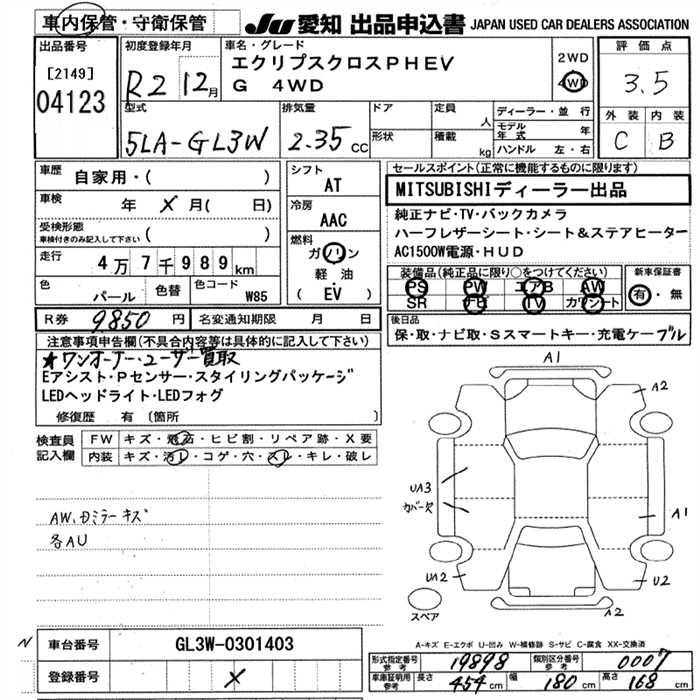 車内保管・守衛保管
JU 愛知 出品申込書 JAPAN USED CAR DEALERS ASSOCIATION
出品番号
[2149]
04123
初度登録年月
R2 12月
車名・グレード
エクリプスクロスPHEV
G 4WD
2WD
4WD
評価点
3.5
外装 内装
C B
型式
5LA-GL3W
排気量
2.35 CC
ドア
形状
定員 人
積載 kg
ディーラー・並行
モデル年式 年
ハンドル 左・右
車歴
自家用・( )
車検 年 X 月( 日)
受検形態
車検付きのみ記入して下さい ( )
走行 4万7千989km
色 パール 色替 色コード W85
シフト
AT
冷房
AAC
燃料
ガソリン
軽油
(EV)
セールスポイント(正常に機能するものに限ります)
MITSUBISHIディーラー出品
純正ナビ・TV・バックカメラ
ハーフレザーシート・シート&ステアヒーター
AC1500W電源・HUD
装備品(純正品に限り○をつけてください)
PS PW エアB AW
SR TV カワシート
新車保証書
有・無
R券 9850円 名変通知期限 月 日
後日品
保・取・ナビ取・Sスマートキー・充電ケーブル
注意事項申告欄(不具合内容等は具体的に記入して下さい)
★ワンオーナー・ユーザー買取
Eアシスト・Pセンサー・スタイリングパッケージ
LEDヘッドライト・LEDフォグ
修復歴 有(箇所 )
検査員記入欄
FW キズ・飛石・ヒビ割・リペア跡・X要
内装 キズ・汚レ・コゲ・穴・スレ・キレ・破レ
AW、カミラーキズ
各AU
A1
A2
UA3
カバー欠
A1
UA2
U2
A2
スペア
A-キズ E-エクボ U-凹み W-補修跡 S-サビ C-腐食 XX-交換済
N
車台番号 GL3W-0301403
登録番号 X
形式指定番号 参考 19898 類別区分番号 参考 0007
車庫証明用 参考 長さ 454 cm 幅 180 cm 高さ 168 cm